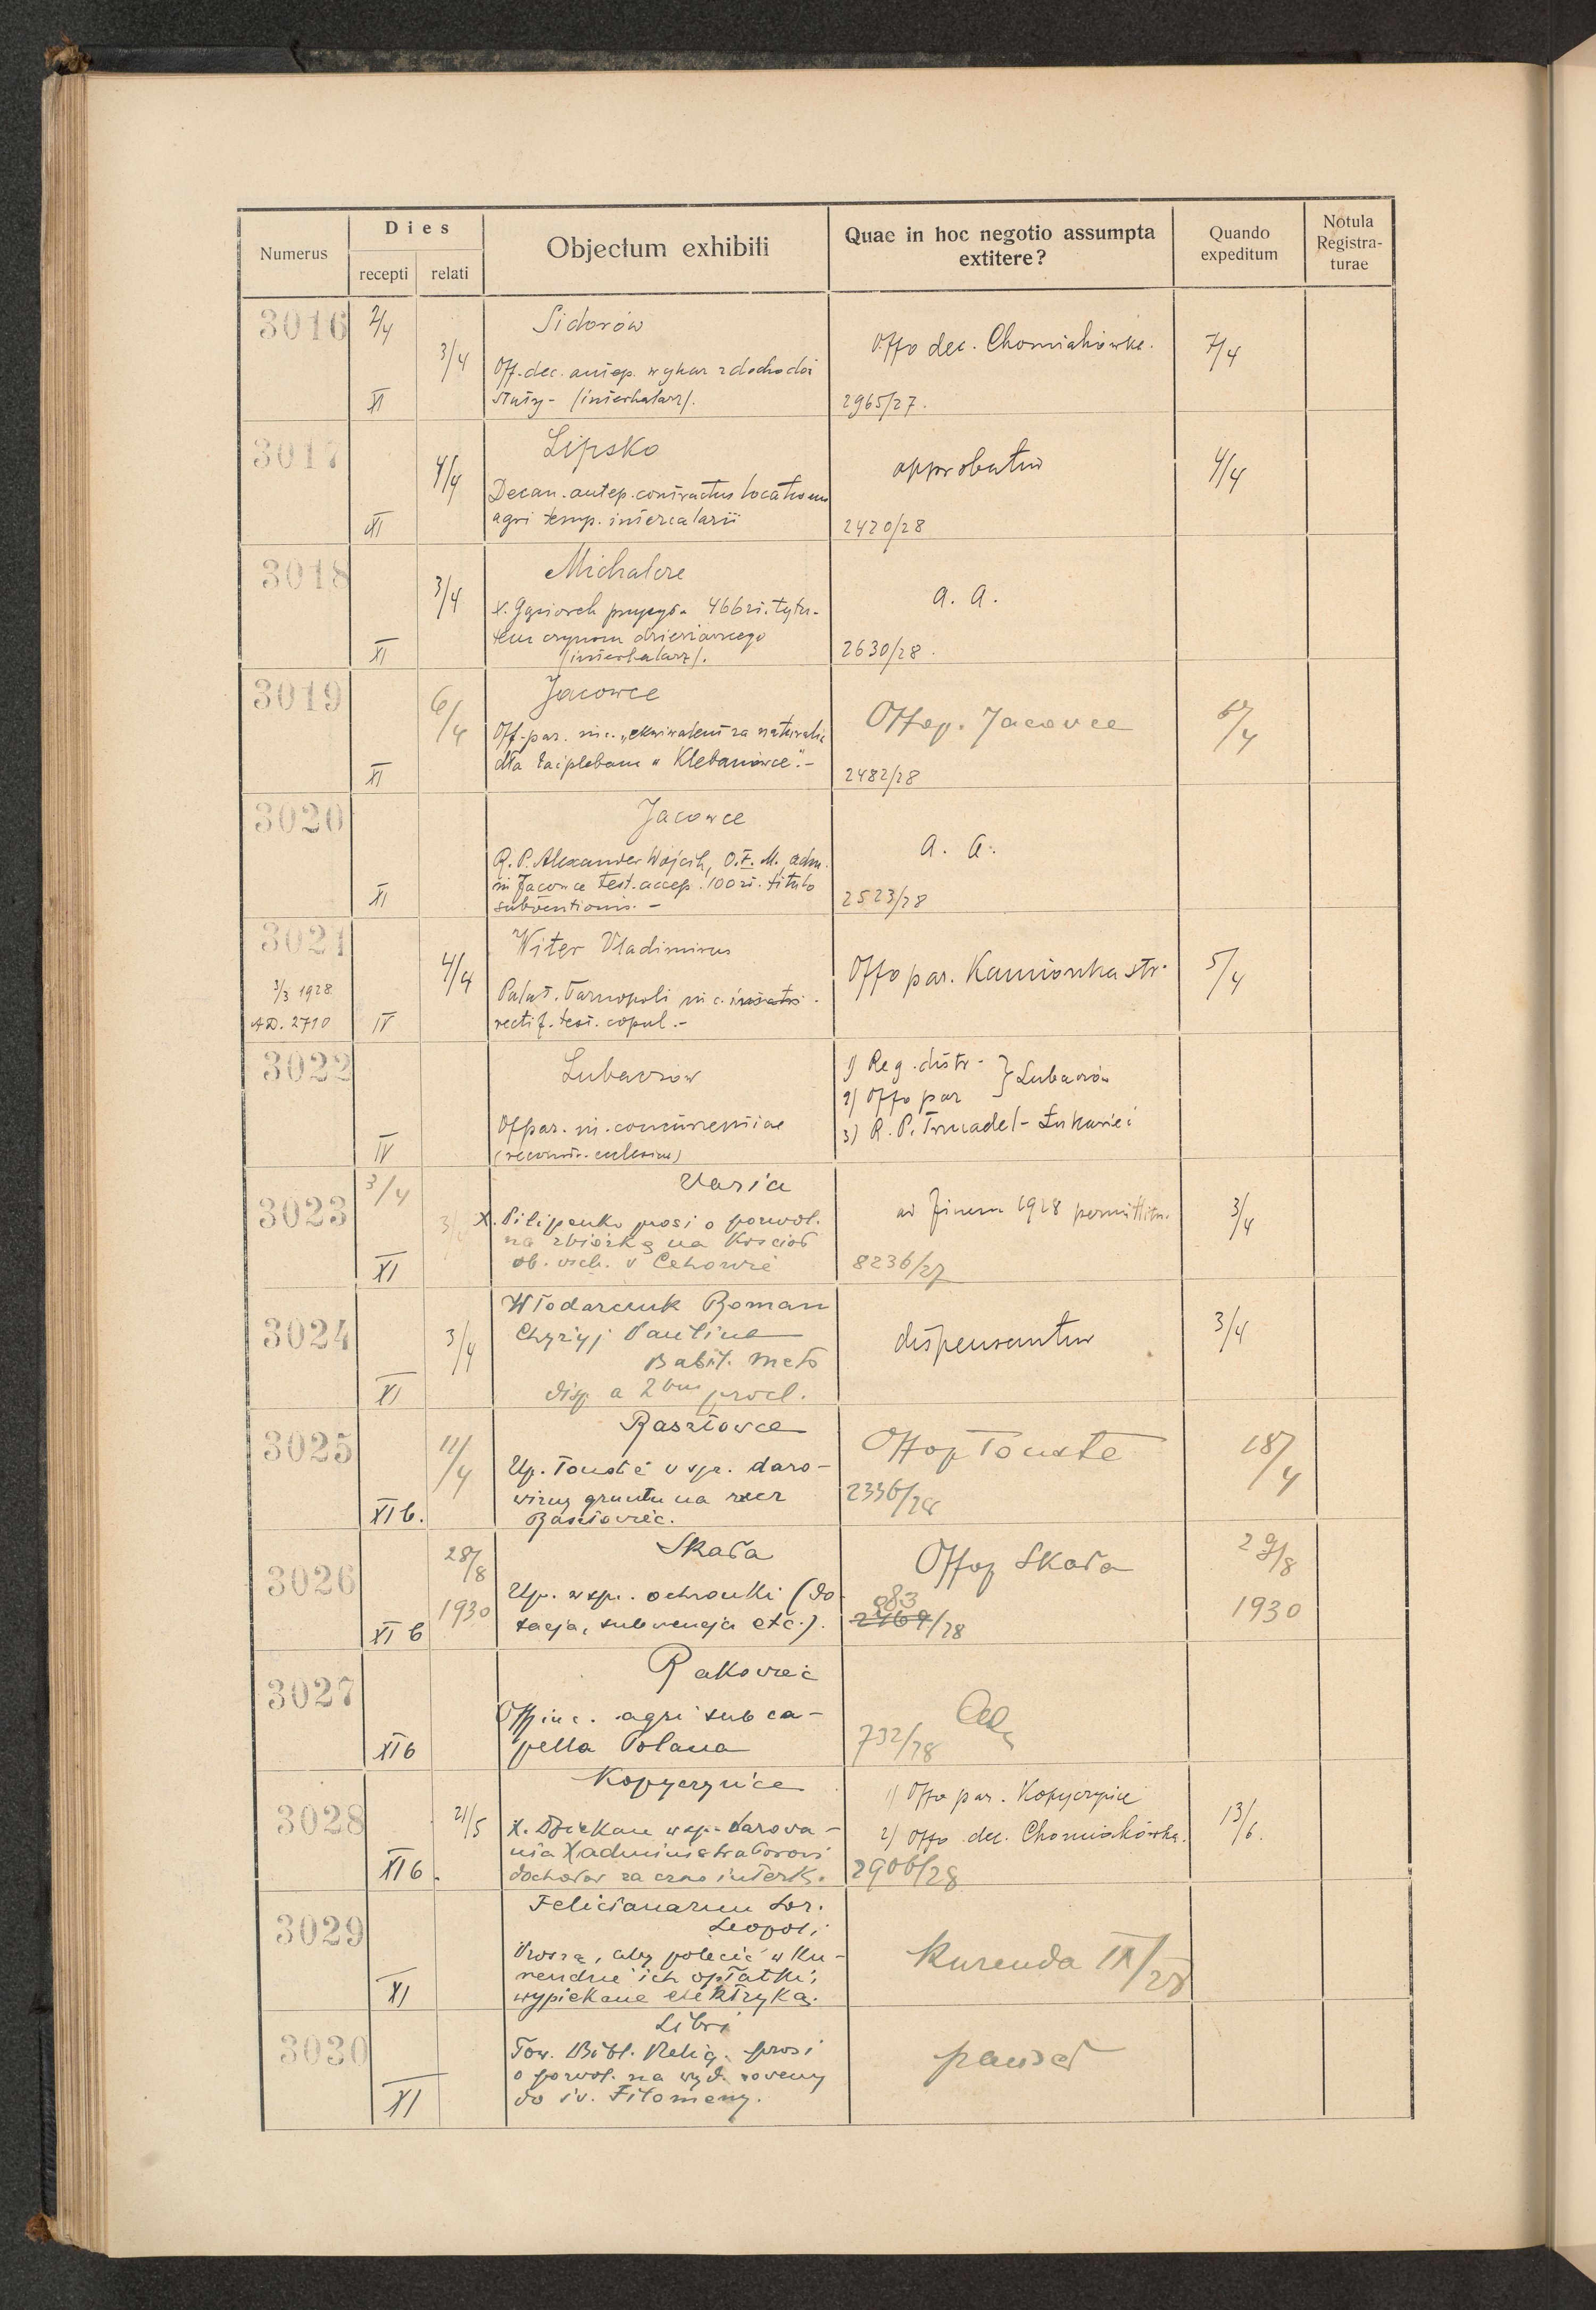 Numerus
Dies
recepti
relati
Objectum exhibiti
Quae in hoc negotio assumpta
extitere?
Quando
expeditum
Notula
Registra-
turae
3016
2/4
3/4
XI
Sidorów
Off. dec. antep. wykaz z dochodów
(interkalarz).
Offo dec. Chomiakówka.
2965/27.
7/4
3017
4/4
XI
Lipsko
Decan. antep. contractus locationis
agri temp. intercalarii
approbatur
2420/28
4/4
3018
3/4
XI
Michalcze
X. Gąsiorek 466 zł. tytu-
łem czynszu dzierżawnego
(interkalarz).
a. a.
2630/28.
3019
6/4
XI
Jacowce
Off. par. in c. „ekwiwalent za naturalia
dla w Klebanówce".-
Offop. Jacowce
2482/28
3020
XI
Jacowce
R. P. Alexander Wójcik, O.F.M. adm.
in Jacowce test. accep. 100 zł. titulo
subventionis. -
a. a.
2523/28
3021
3/3 1928
AD. 2710
4/4
IV
Witer Vladimirus
Palat. Tarnopoli in c.
rectif. test. copul.-
Offo par. Kamionka str.
5/4
3022
IV
Lubaczów
Offpar. in c. concurrentiae
1) Reg. distr.
2) Offo par
} Lubaczów
3) R. P.
3023
3/4
3/4
XI
Varia
X. Pilipenko prosi o pozwol.
na zbiórkę na Kościół
ob. wsch. w
ad finem 1928 permittitur.
8236/27
3/4
3024
3/4
XI
Włodarczuk Roman
Chyżyj Paulina
disp a 2bus procl.
dispensantur
3/4
3025
11/4
XI b.
Rasztowce
Up. Touste w spr. daro-
wizny gruntu na rzecz
Rasztowiec.
Offop Touste
2336/28
18/4
3026
28/8
1930
XI b
Skała
Up. w spr. ochronki (do-
tacja, subwencja etc.).
Offop Skała
983
2469/28
29/8
1930
3027
XI b
Rakowiec
Off in c. agri sub ca-
pella Polana
732/28
3028
21/5
XI b.
Kopyczyńce
X. Dziekan w sp. darowa-
nia X administratorowi
dochodów za czas interk.
1) Offo par. Kopyczyńce
2) Offo dec. Chomiakówka.
2906/28
13/6.
3029
XI
Felicianarum Sor.
Leopoli
Proszą, aby polecić w Ku-
rendzie ich opłatki,
wypiekane elektryką.
Kurenda IV/28
3030
XI
Libri
Tow. Bibl. Relig. prosi
o pozwol. na wyd. noveny
do św. Filomeny.